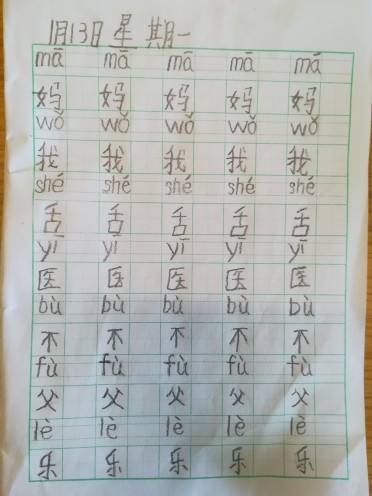 1月13日 星期一
mā mā mā mā mā
妈 妈 妈 妈 妈
wǒ wǒ wǒ wǒ wǒ
我 我 我 我 我
shé shé shé shé shé
舌 舌 舌 舌 舌
yī yī yī yī yī
医 医 医 医 医
bù bù bù bù bù
不 不 不 不 不
fù fù fù fù fù
父 父 父 父 父
lè lè lè lè lè
乐 乐 乐 乐 乐